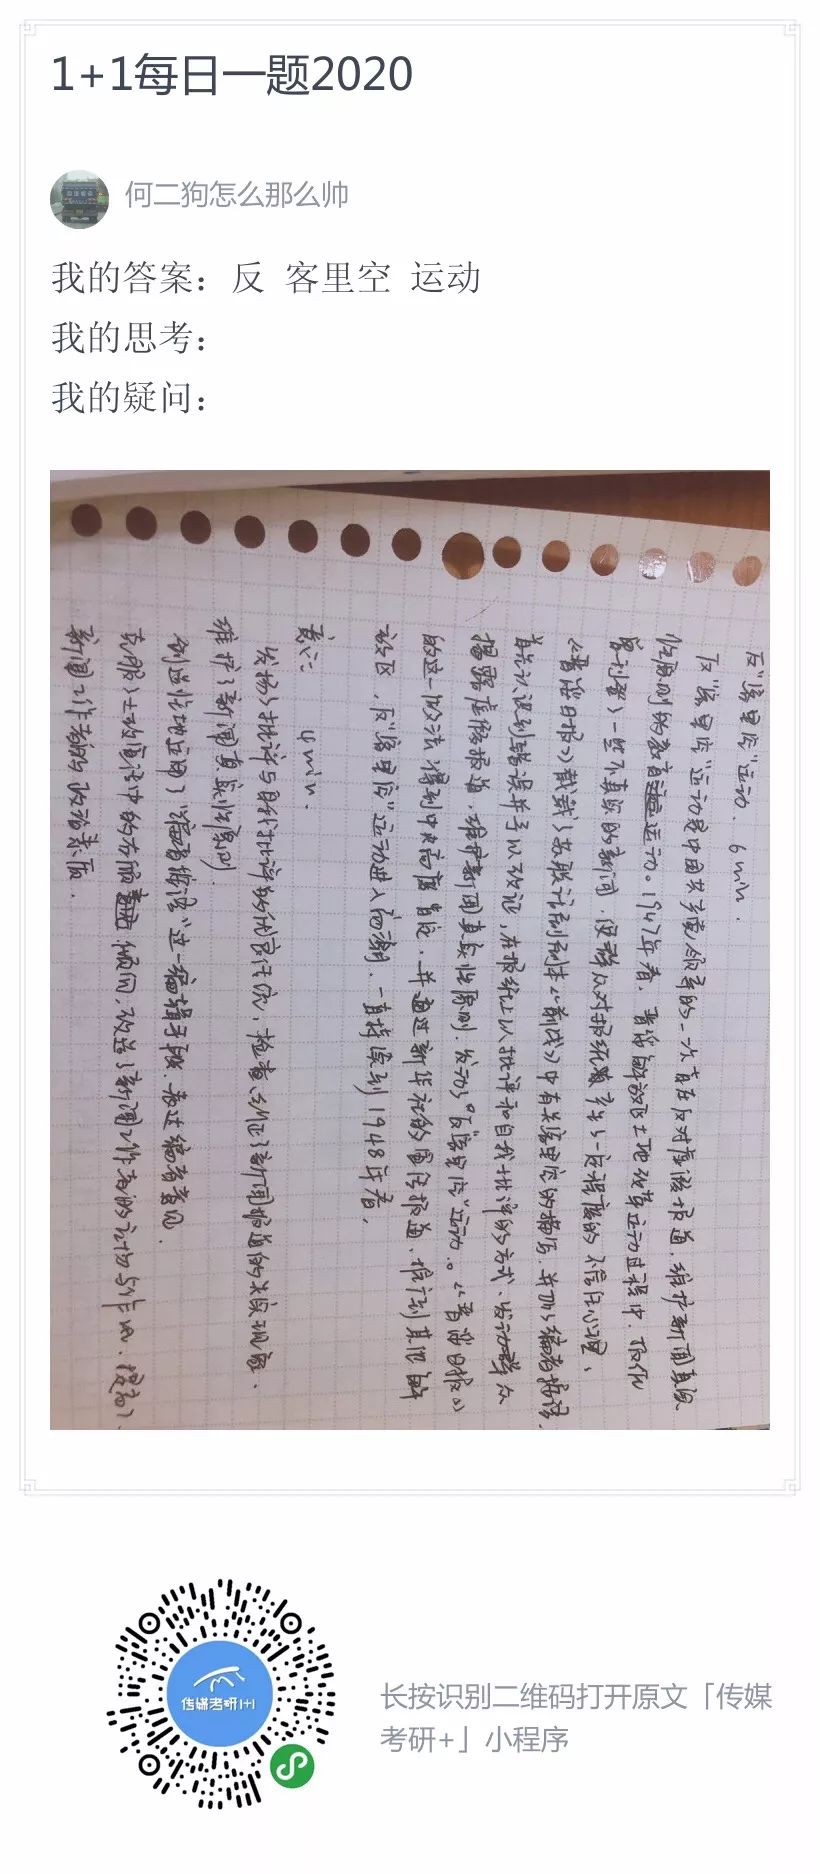 1+1每日一题2020
何二狗怎么那么帅
我的答案：反 客里空 运动
我的思考：
我的疑问：
反“客里空”运动. 6min.
反“客里空”运动是中国共产党领导的一次旨在反对虚假报道、维护新闻真实
性原则的教育运动。1947年春，晋绥解放区土地改革运动过程中，
客刊登了一些不真实的新闻，使群众对报纸产生了一定程度的不信任心理，
《晋绥日报》载了苏联话剧剧本《前线》中有关客里空的描写，并加了编者按语，
认识到错误并予以改正，在报纸上以批评和自我批评的方式、发动群众
揭露虚假报道，维护新闻真实性原则，发动了“反客里空”运动。《晋绥日报》
的这一做法得到中央高度肯定，并通过新华社的宣传报道，推行到其他解
放区，反“客里空”运动进入高潮，一直持续到1948年春，
意义： 4min.
发扬了批评与自我批评的优良作风，检查纠正了新闻报道的失实现象，
维护了新闻真实性原则.
创造性地运用了“编者按语”这一编辑手段，表达编者意见.
克服了土改宣传中的右倾 倾向，改造了新闻工作者的立场与作风，提高了
新闻工作者的政治素质.
传媒考研1+1
长按识别二维码打开原文「传媒
考研+」小程序